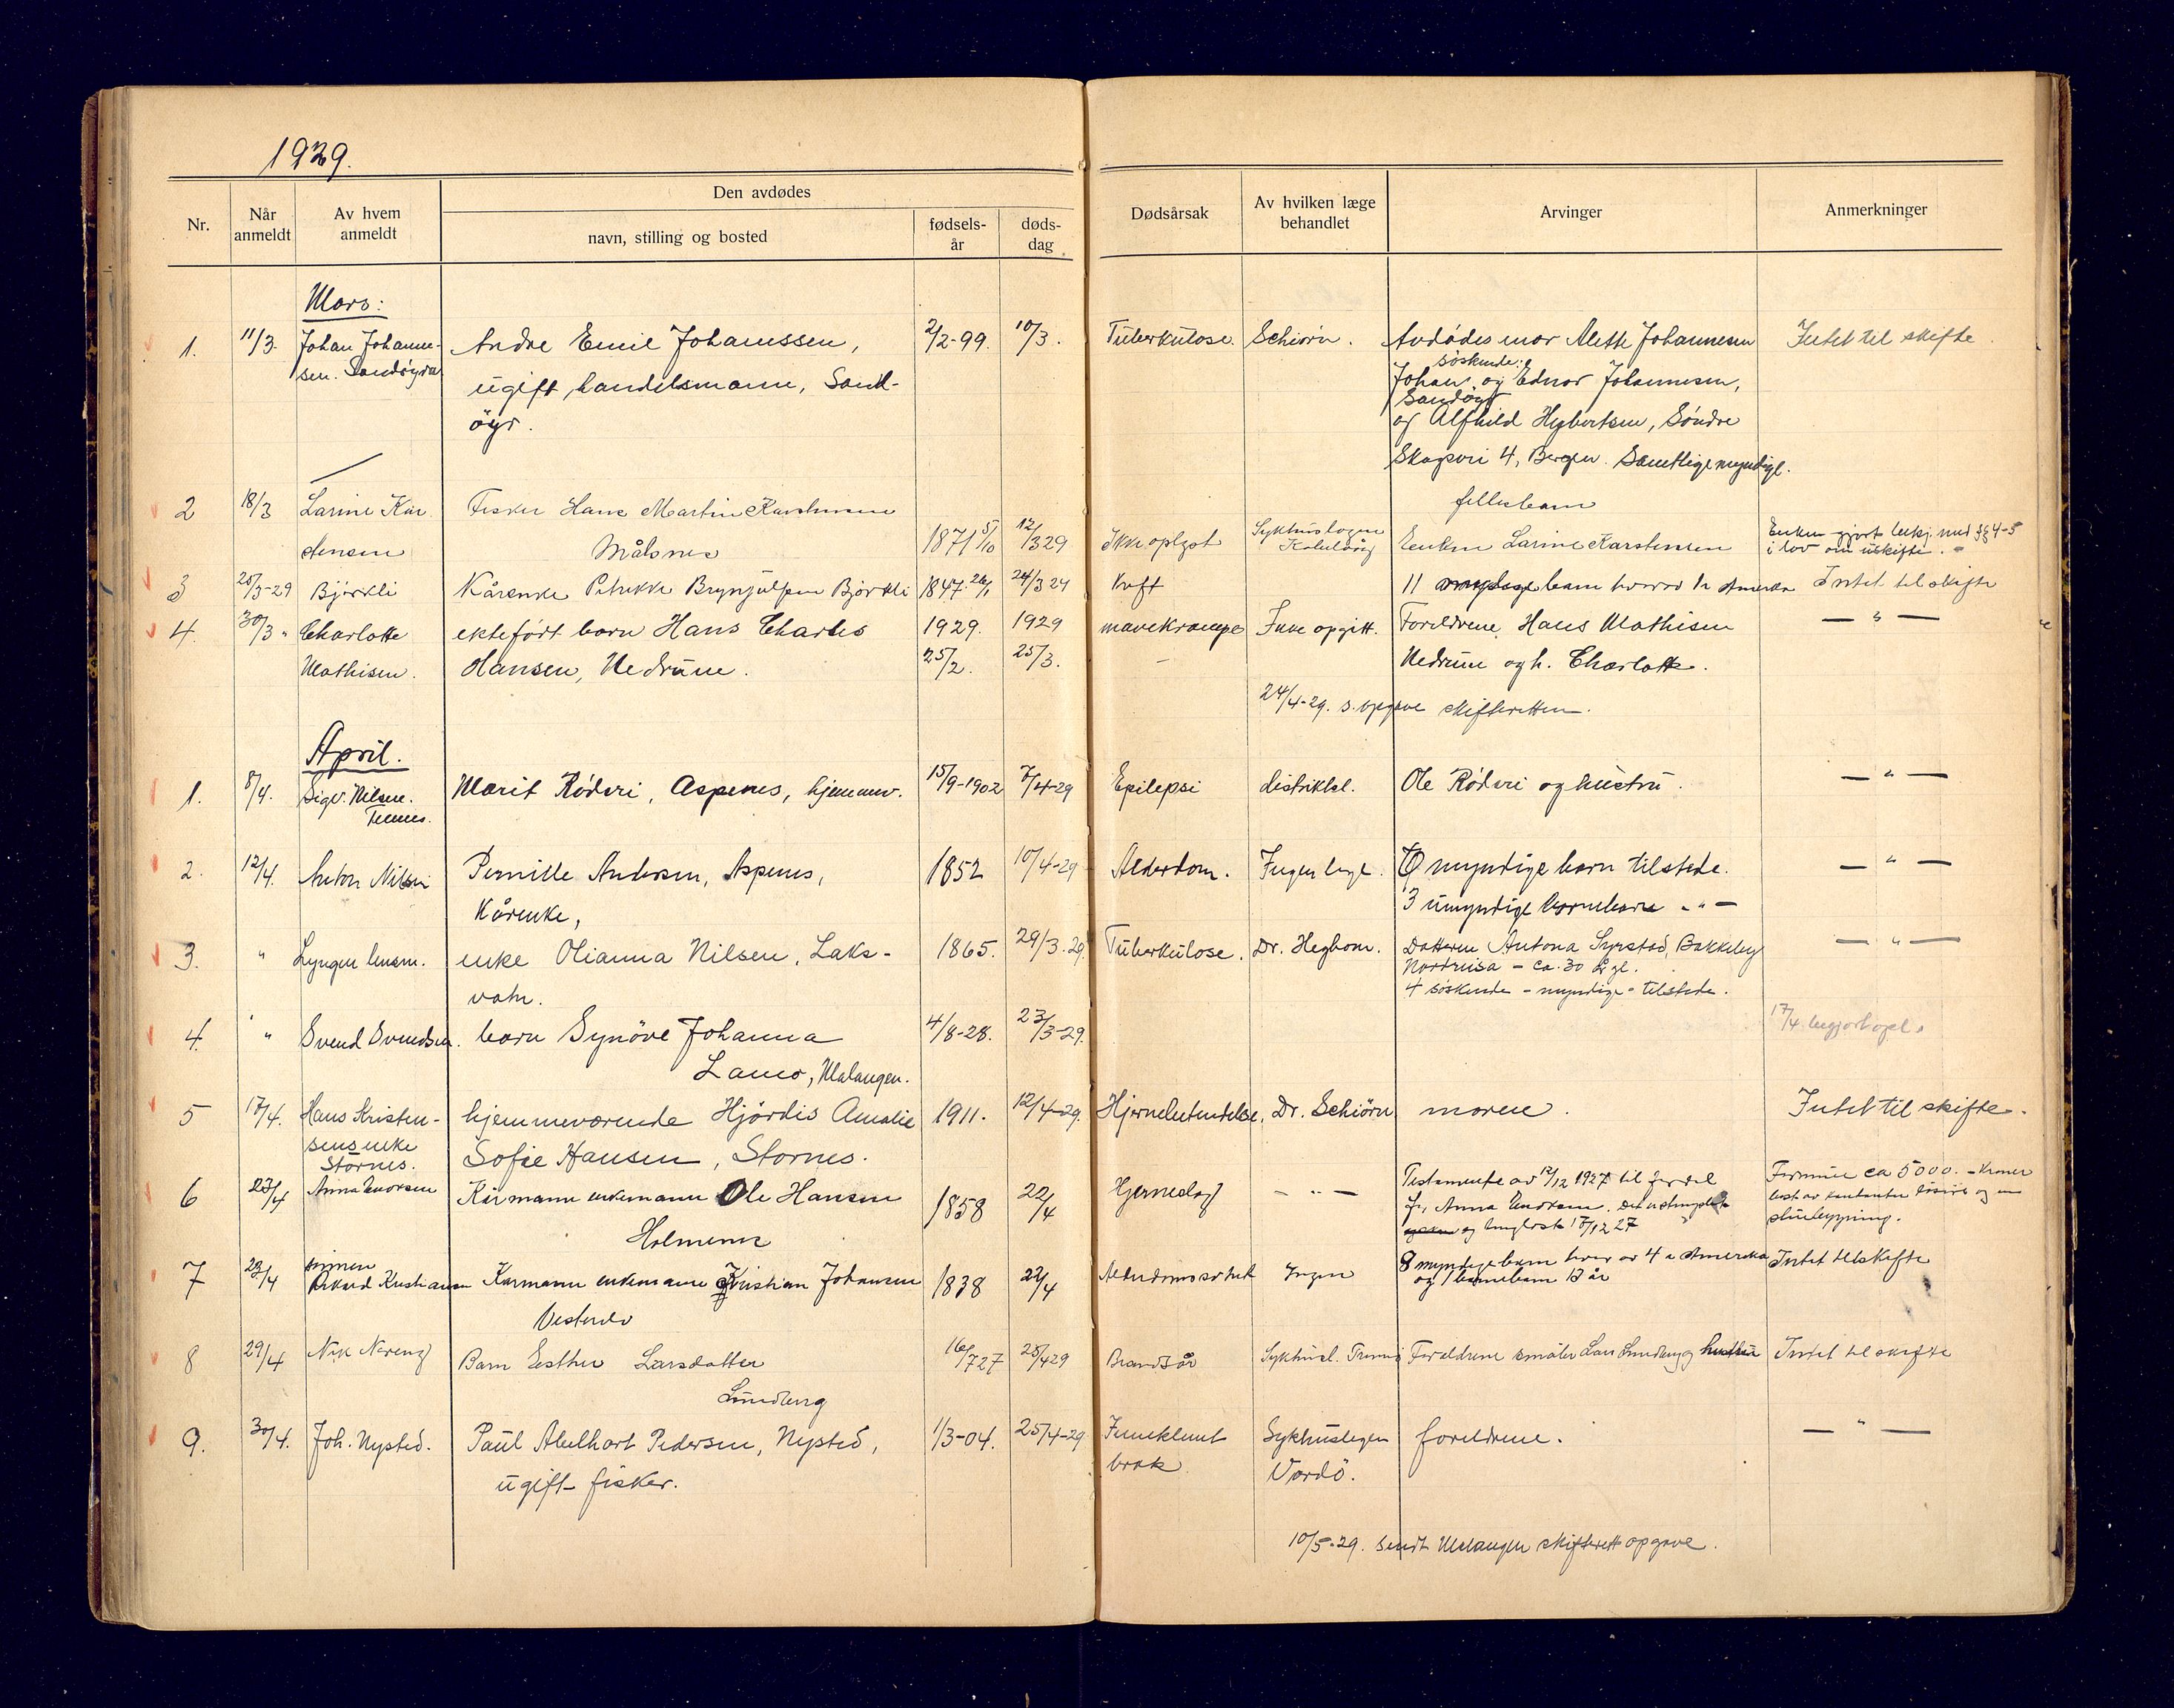 1929.
Nr.
Når anmeldt
Av hvem anmeldt
Den avdødes
navn, stilling og bosted
fødsels-år
døds-dag
Dødsårsak
Av hvilken læge behandlet
Arvinger
Anmerkninger
Mars:
1. 11/3. Johan Johanne- Andre Emil Johanssen, 2/2-99. 10/3. Tuberkulose. Schiørn. Avdødes mor Alette Johannesen Intet til skifte
sen. Sandøyra ugift handelsmann, Sand- søskende: Johan og Ednar Johannesen,
øyr. Sandøyr
og Alfhild Hybertsen, Søndre
Skogvei 4, Bergen. Samtlige myndige.
2 18/3 Larine Kar Fisker Hans Martin Karstensen fellesbarn
stensen Målsnes 1871 5/10 12/3 29 Ikke oplyst Sykhuslægen Enken Larine Karstensen Enken gjort bekj. med §§ 4-5
i lov om uskifte.
3 25/3-29 Bjørkli Kårenke Petrikke Brynjulfsen Bjørkli 1847 26/1 24/3 29 Kreft 11 barn hvorav 1 i Amerika Intet til skifte
4. 30/3 " Charlotte ektefødt barn Hans Charles 1929. 1929 mavekrampe Inne opgitt. Foreldrene Hans Mathisen — " —
Mathisen. Hansen, Nedrum. 25/2. 25/3. Nedrum og h. Charlotte.
24/4-29. s. opgave skifteretten.
April.
1. 8/4. Sigv. Nilsen. Marit Røderi, Aspenes, hjemmev. 15/9-1902 7/4-29 Epilepsi distriktsl. Ole Røderi og hustru. — " —
Tennes.
2. 12/4. Anton Nilsen Pernille Andersen, Aspenes, 1852 10/4-29 Alderdom. Ingen læge. myndige barn tilstede. — " —
Kårenke, 3 umyndige barnebarn - " -
3. " Lyngen lensm. enke Olianna Nilsen, Laks- 1865. 29/3-29. Tuberkulose. Dr. Heghom. Datteren Antona Syrstad, Bakkeby — " —
vatn. Nordreisa - ca. 30 år gl.
4 søskende - myndige - tilstede.
4. " Svend Svendsen. barn Synøve Johanna 4/8-28. 23/3-29. 17/4 begjært opl.
Lamo, Malangen.
5 17/4. Hans Kristen- hjemmeværende Hjørdis Amalie 1911. 12/4-29. Hjernebetendelse. Dr. Schiørn moren. Intet til skifte.
sens enke Sofie Hansen, Stornes.
Stornes.
6 23/4 Anna Enoksen Kårmann enkemann Ole Hansen 1858 22/4 Hjerneslag — " — Testamente av 12/12 1927 til fordel Formue ca 5000.- Kroner
Holmenes fr. Anna og tinglest 17/12 27 best. av kontanter løsøre og en
stuebygning.
7 23/4 Rikard Kristiansen Kårmann enkemann Kristian Johansen 1838 22/4 Alderdomssvakh Ingen 8 myndige barn hvor av 4 i Amerika Intet til skifte
Vesterelv og 1 barnebarn 13 år
8 29/4 Barn Esther Larsdatter 16/7 27 25/4 29 Brandsår Sykhusl. Tromsø Foreldrene småbr. Lars Lundberg og hustru Intet til skifte
Lundberg
9. 30/4. Joh. Nysted. Paul Abelhart Pedersen, Nysted, 1/3-04. 25/4-29 Inneklemt Sykhuslegen foreldrene. — " —
ugift fisker. brok Vardø.
10/5-29. sendt Malangen skifterett opgave.